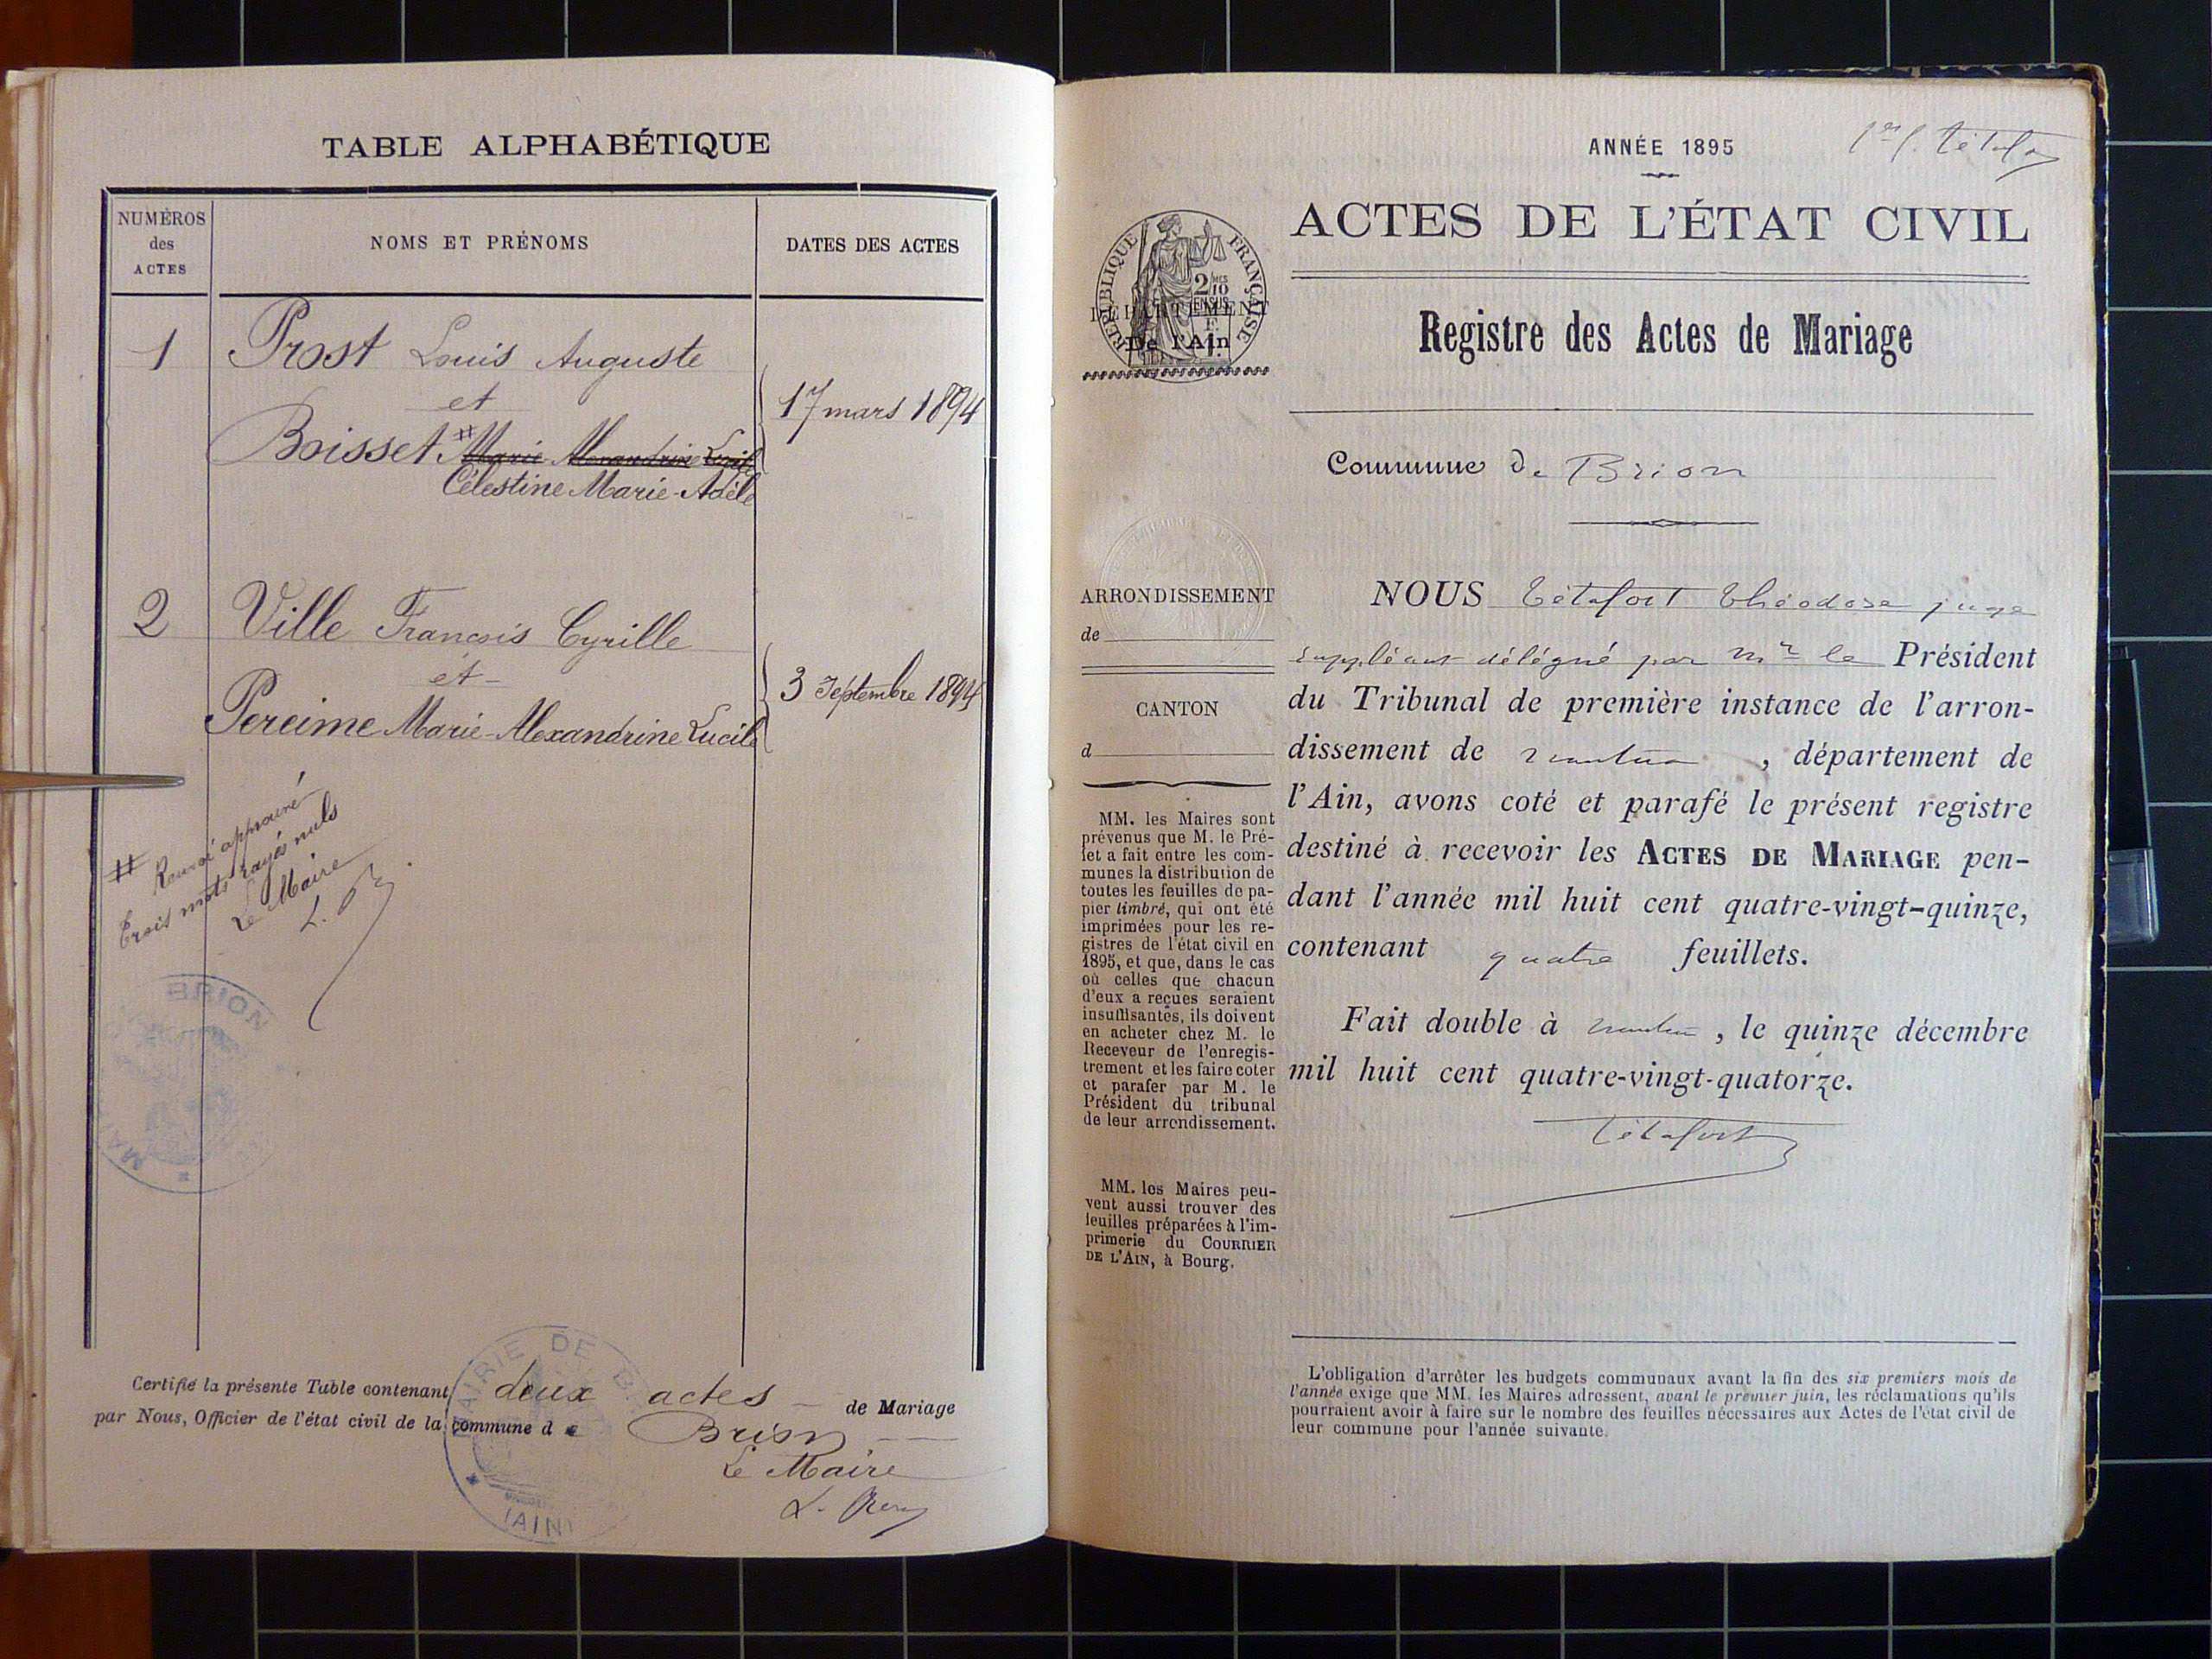 TABLE ALPHABÉTIQUE
NUMÉROS
des
ACTES
NOMS ET PRÉNOMS
DATES DES ACTES
1
Prost Louis Auguste
et
17 mars 1894
Boisset # Marie Alexandrine Lucile
Célestine Marie-Adèle
2
Ville Francois Cyrille
et
3 Septembre 1894
Pereime Marie-Alexandrine Lucile
# Renvoi approuvé
Trois mots rayés nuls
Le Maire
L.
BRION
Certifié la présente Table contenant deux actes de Mariage
par Nous, Officier de l'état civil de la commune de Brion
Le Maire
L.
MAIRIE DE B
(AIN)
ANNÉE 1895
1er f. Tétafort
ACTES DE L'ÉTAT CIVIL
RÉPUBLIQUE FRANÇAISE
2/10
EN SUS
DÉPARTEMENT
De l'Ain
Registre des Actes de Mariage
Commune de Brion
ARRONDISSEMENT
de
CANTON
d
MM. les Maires sont
prévenus que M. le Pré-
fet a fait entre les com-
munes la distribution de
toutes les feuilles de pa-
pier timbré, qui ont été
imprimées pour les re-
gistres de l'état civil en
1895, et que, dans le cas
où celles que chacun
d'eux a reçues seraient
insuffisantes, ils doivent
en acheter chez M. le
Receveur de l'enregis-
trement et les faire coter
et parafer par M. le
Président du tribunal
de leur arrondissement.
MM. les Maires peu-
vent aussi trouver des
feuilles préparées à l'im-
primerie du COURRIER
DE L'AIN, à Bourg.
NOUS Tétafort Théodore juge
suppléant délégué par Mr le Président
du Tribunal de première instance de l'arron-
dissement de Nantua, département de
l'Ain, avons coté et parafé le présent registre
destiné à recevoir les ACTES DE MARIAGE pen-
dant l'année mil huit cent quatre-vingt-quinze,
contenant quatre feuillets.
Fait double à Nantua, le quinze décembre
mil huit cent quatre-vingt-quatorze.
Tétafort
L'obligation d'arrêter les budgets communaux avant la fin des six premiers mois de
l'année exige que MM. les Maires adressent, avant le premier juin, les réclamations qu'ils
pourraient avoir à faire sur le nombre des feuilles nécessaires aux Actes de l'état civil de
leur commune pour l'année suivante.